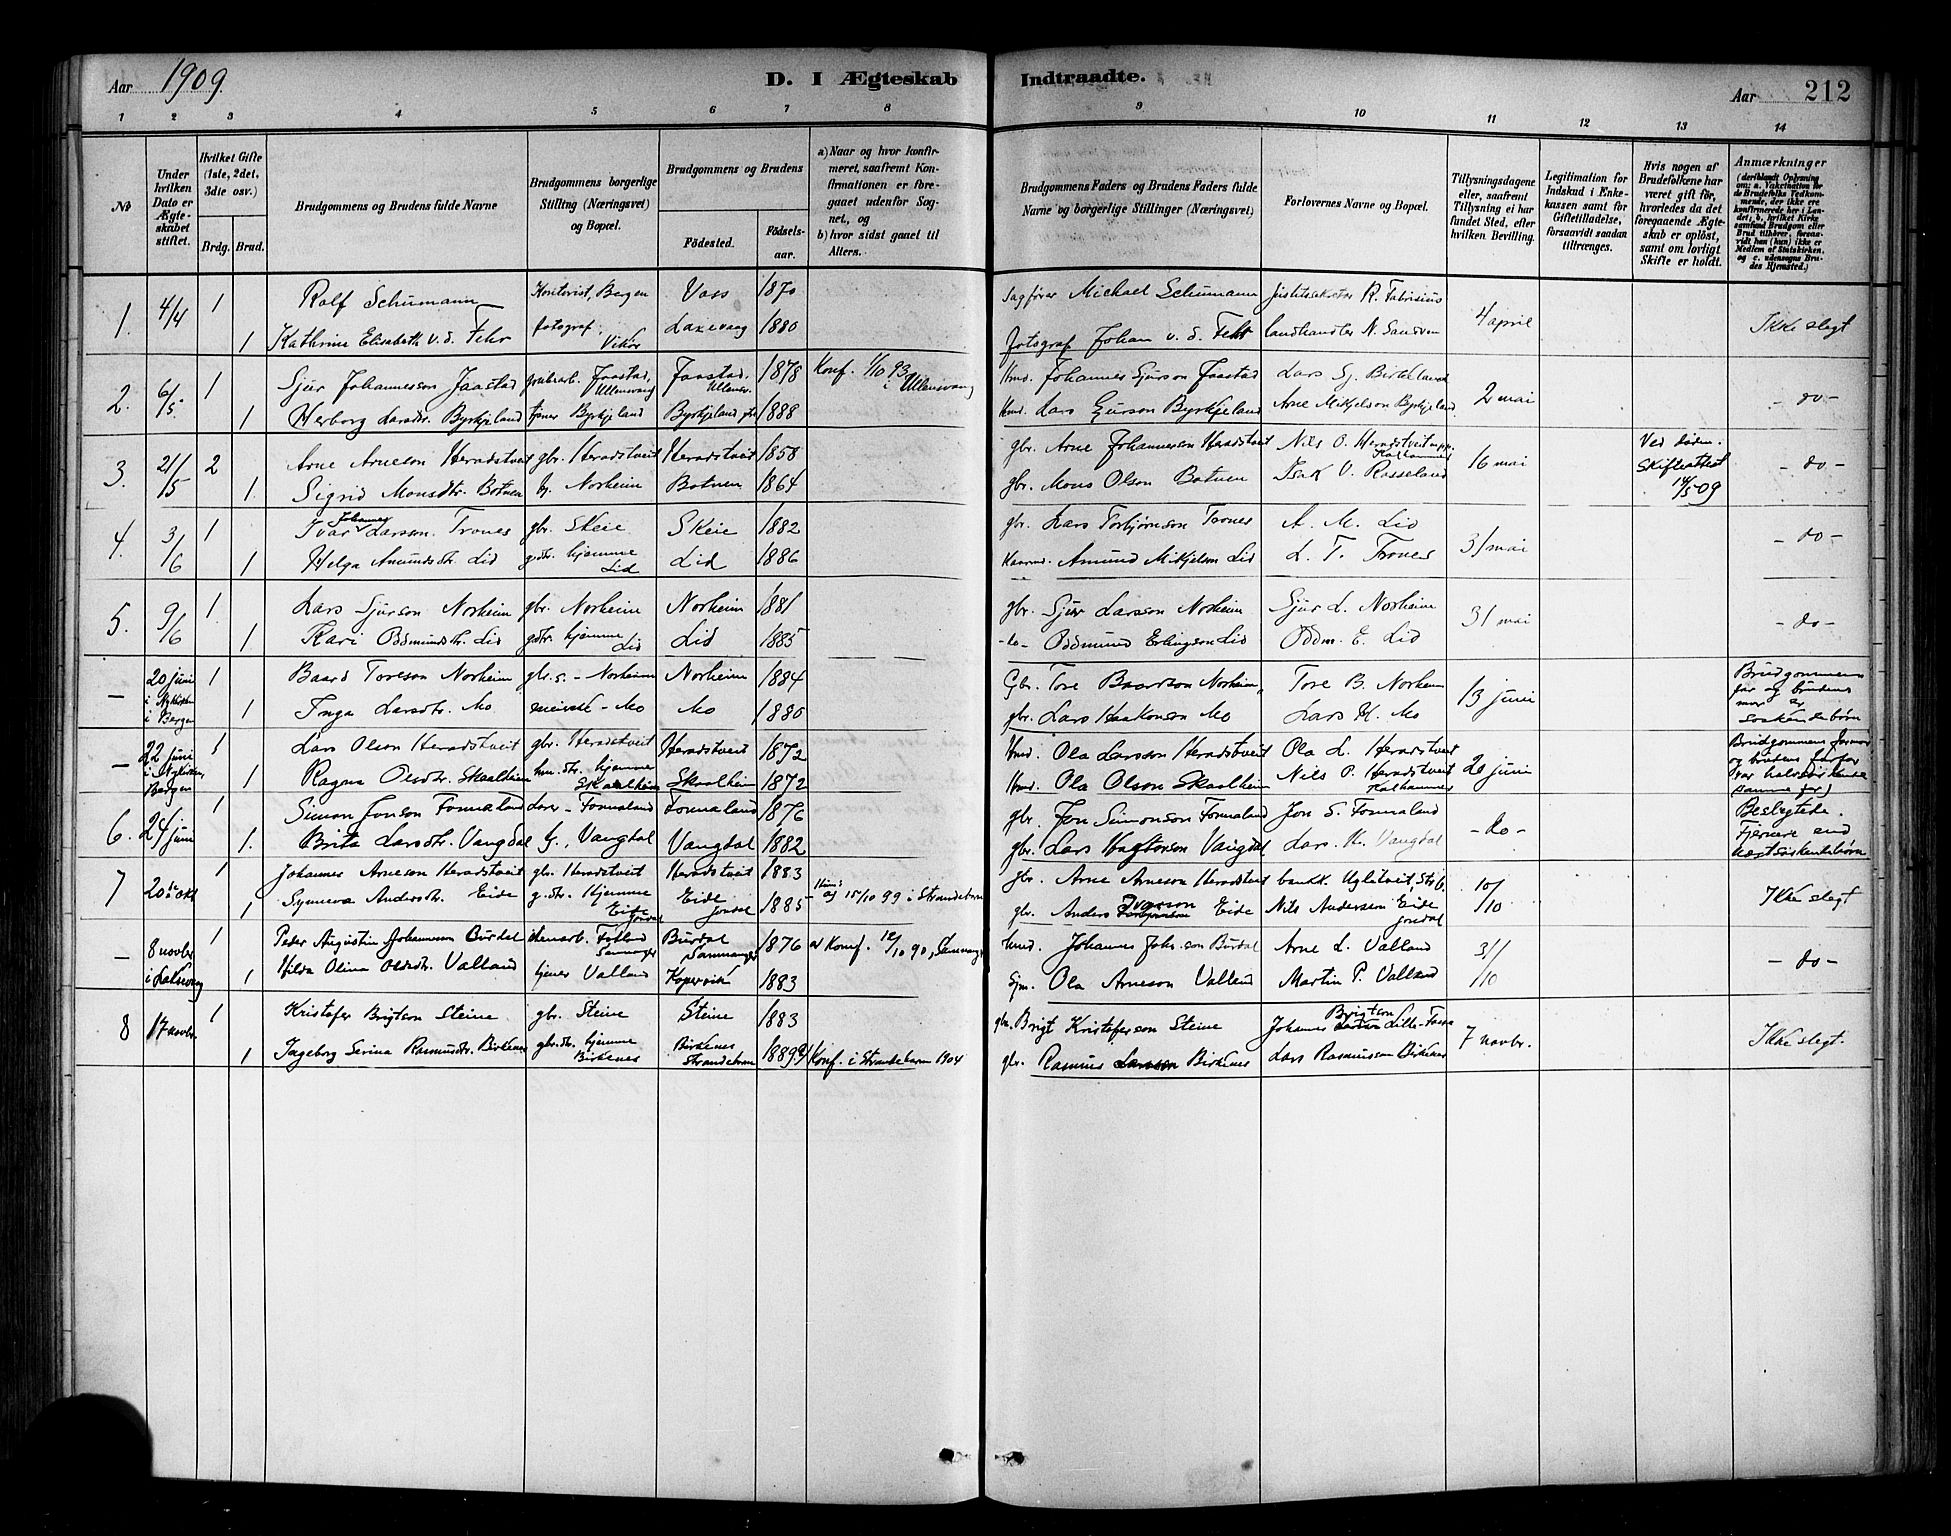 Aar 1909.
D. I Ægteskab Indtraadte.
Aar 212
1 2 3 4 5 6 7 8 9 10 11 12 13 14
No
Under hvilken Dato er Ægteskabet stiftet.
Hvilket Gifte (1ste, 2det, 3die osv.)
Brdg. Brud.
Brudgommens og Brudens fulde Navne
Brudgommens borgerlige Stilling (Næringsvei) og Bopæl.
Brudgommens og Brudens
Fødested. Fødselsaar.
a) Naar og hvor konfirmeret, saafremt Konfirmationen er foregaaet udenfor Sognet, og
b) hvor sidst gaaet til Alters.
Brudgommens Faders og Brudens Faders fulde Navne og borgerlige Stillinger (Næringsvei)
Forlovernes Navne og Bopæl.
Tillysningsdagene eller, saafremt Tillysning ei har fundet Sted, efter hvilken Bevilling.
Legitimation for Indskud i Enkekassen samt for Giftetilladelse, forsaavidt saadan tiltrænges.
Hvis nogen af Brudefolkene har været gift før, hvorledes da det foregaaende Ægteskab er opløst, samt om lovligt Skifte er holdt.
Anmærkninger
(deriblandt Oplysning om: a. Vakcination for de Brudefolks Vedkommende, der ikke ere konfirmerede her i Landet; b. hvilket Kirkesamfund Brudgom eller Brud tilhører, forsaavidt han (hun) ikke er Medlem af Statskirken, og c. udensogns Brudes Hjemsted.)
1. 4/4 1 Rolf Schumann Bergen Voss 1870 Sagfører Michael Schumann R. Fabrisius 4 april Ikke slegt
1 Kathrine Elisabeth v. d. Fehr fotograf, Vikør Laxevaag 1880 fotograf Johan v. d. Fehr landhandler N. Sandven
2. 6/5 1 Sjur Johannesson Jaastad Jaastad, Ullensvang Jaastad, Ullensv. 1878 Konf. 1/10 93 i Ullensvang Hmd. Johannes Sjurson Jaastad Lars Sj. Birkeland 2 mai - do -
1 Herborg Larsdtr. Byrkjeland tjener Byrkjeland Byrkjeland 1888 Hmd. Lars Byrkjeland Arne Mikjelson Byrkjeland
3. 21/5 2 Arne Arneson Heradstveit gbr. Heradstveit Heradstveit 1858 gbr. Arne Johannesson Heradstveit Nils O. Heradstveit Kalhammer 16 mai Ved døden. Skifteattest 14/5 09 - do -
1. Sigrid Monsdtr. Botnen Norheim Botnen 1864 gbr. Mons Olson Botnen Isak V. Rosseland
4. 3/6 1 Ivar Johannes Larsson Trones gbr. Skeie Skeie 1882 gbr. Lars Torbjørnson Trones A. M. Lid 31 mai - do -
1 Helga Amundsdtr. Lid g.dtr. hjemme Lid Lid 1886 Kaarmd. Amund Mikjelson Lid L. T. Trones
5. 9/6 1. Lars Sjurson Norheim gbr. Norheim Norheim 1881 gbr. Sjur Larsson Norheim Sjur L. Norheim 31 mai - do -
1 Kari Oddmundsdtr. Lid g.dtr. hjemme Lid Lid 1885 -do- Oddmund Erlingson Lid Oddm. E. Lid
- 20 juni i Nykirken i Bergen 1 Baard Toreson Norheim gbr. s. - Norheim Norheim 1884 Gbr. Tore Baardson Norheim, Tore B. Norheim 13 juni Brudgommens far og brudens mor er søskendebørn
1 Inga Larsdtr. Mo - Mo Mo 1880 gbr. Lars Haakonson Mo Lars H. Mo
- 22 juni i Nykirken, Bergen 1 Lars Olson Heradstveit gbr. Heradstveit Heradstveit 1872 Hmd. Ola Larsson Heradstveit Ola L. Heradstveit 20 juni Brudgommens farmor og brudens farfar var halvsøskende (samme far)
1 Ragna Olsdtr. Skaalheim hm. dtr. hjemme Skaalheim Skaalheim 1872 Hmd. Ola Olson Skaalheim Nils O. Heradstveit Kalhammer
6. 24 juni 1 Simon Jonson Fonnaland - Fonnaland Fonnaland 1876 gbr. Jon Simonson Fonnaland Jon S. Fonnaland - do - Beslegtede. Fjernere end næstsøskendebørn
1. Brita Larsdtr. Vangdal G., Vangdal Vangdal 1882 gbr. Lars Vangdal Lars K. Vangdal
7 20de okt 1 Johannes Arneson Heradstveit gbr. Heradstveit Heradstveit 1883 gbr. Arne Arneson Heradstveit 10/10 Ikke slegt
1 Synneva Andersdtr. Eide g.dtr. Hjemme Eide Jondal Eide Jondal 1885 15/10 99 i Strandebarm gbr. Anders Ivarson Eide Nils Andersen Eide Jondal
- 8 novbr i Laksevaag 1 Peder Augustin Johannesen Børdal Samnanger Børdal Samnanger 1876 Konf. 12/10 90, Samnanger Hmd. Johannes Joh.son Børdal Arne L. Valland 31/10 - do -
1 Hilda Olina Olsdtr. Valland tjener Valland Kopervik 1883 Sjm. Ola Arneson Valland Martin P. Valland
8 17 novbr. 1 Kristofer Brigtson Steine gbr. Steine Steine 1883 gbr. Brigt Kristoferson Steine Johannes Brigtson 7 novbr. Ikke slegt.
1 Ingeborg Serina Rasmusdtr. Birkenes gbr.dtr. hjemme Birkenes Birkenes Strandebarm 1889 Konf. i Strandebarm 1904 gbr. Rasmus Larsson Birkenes Lars Rasmusson Birkenes